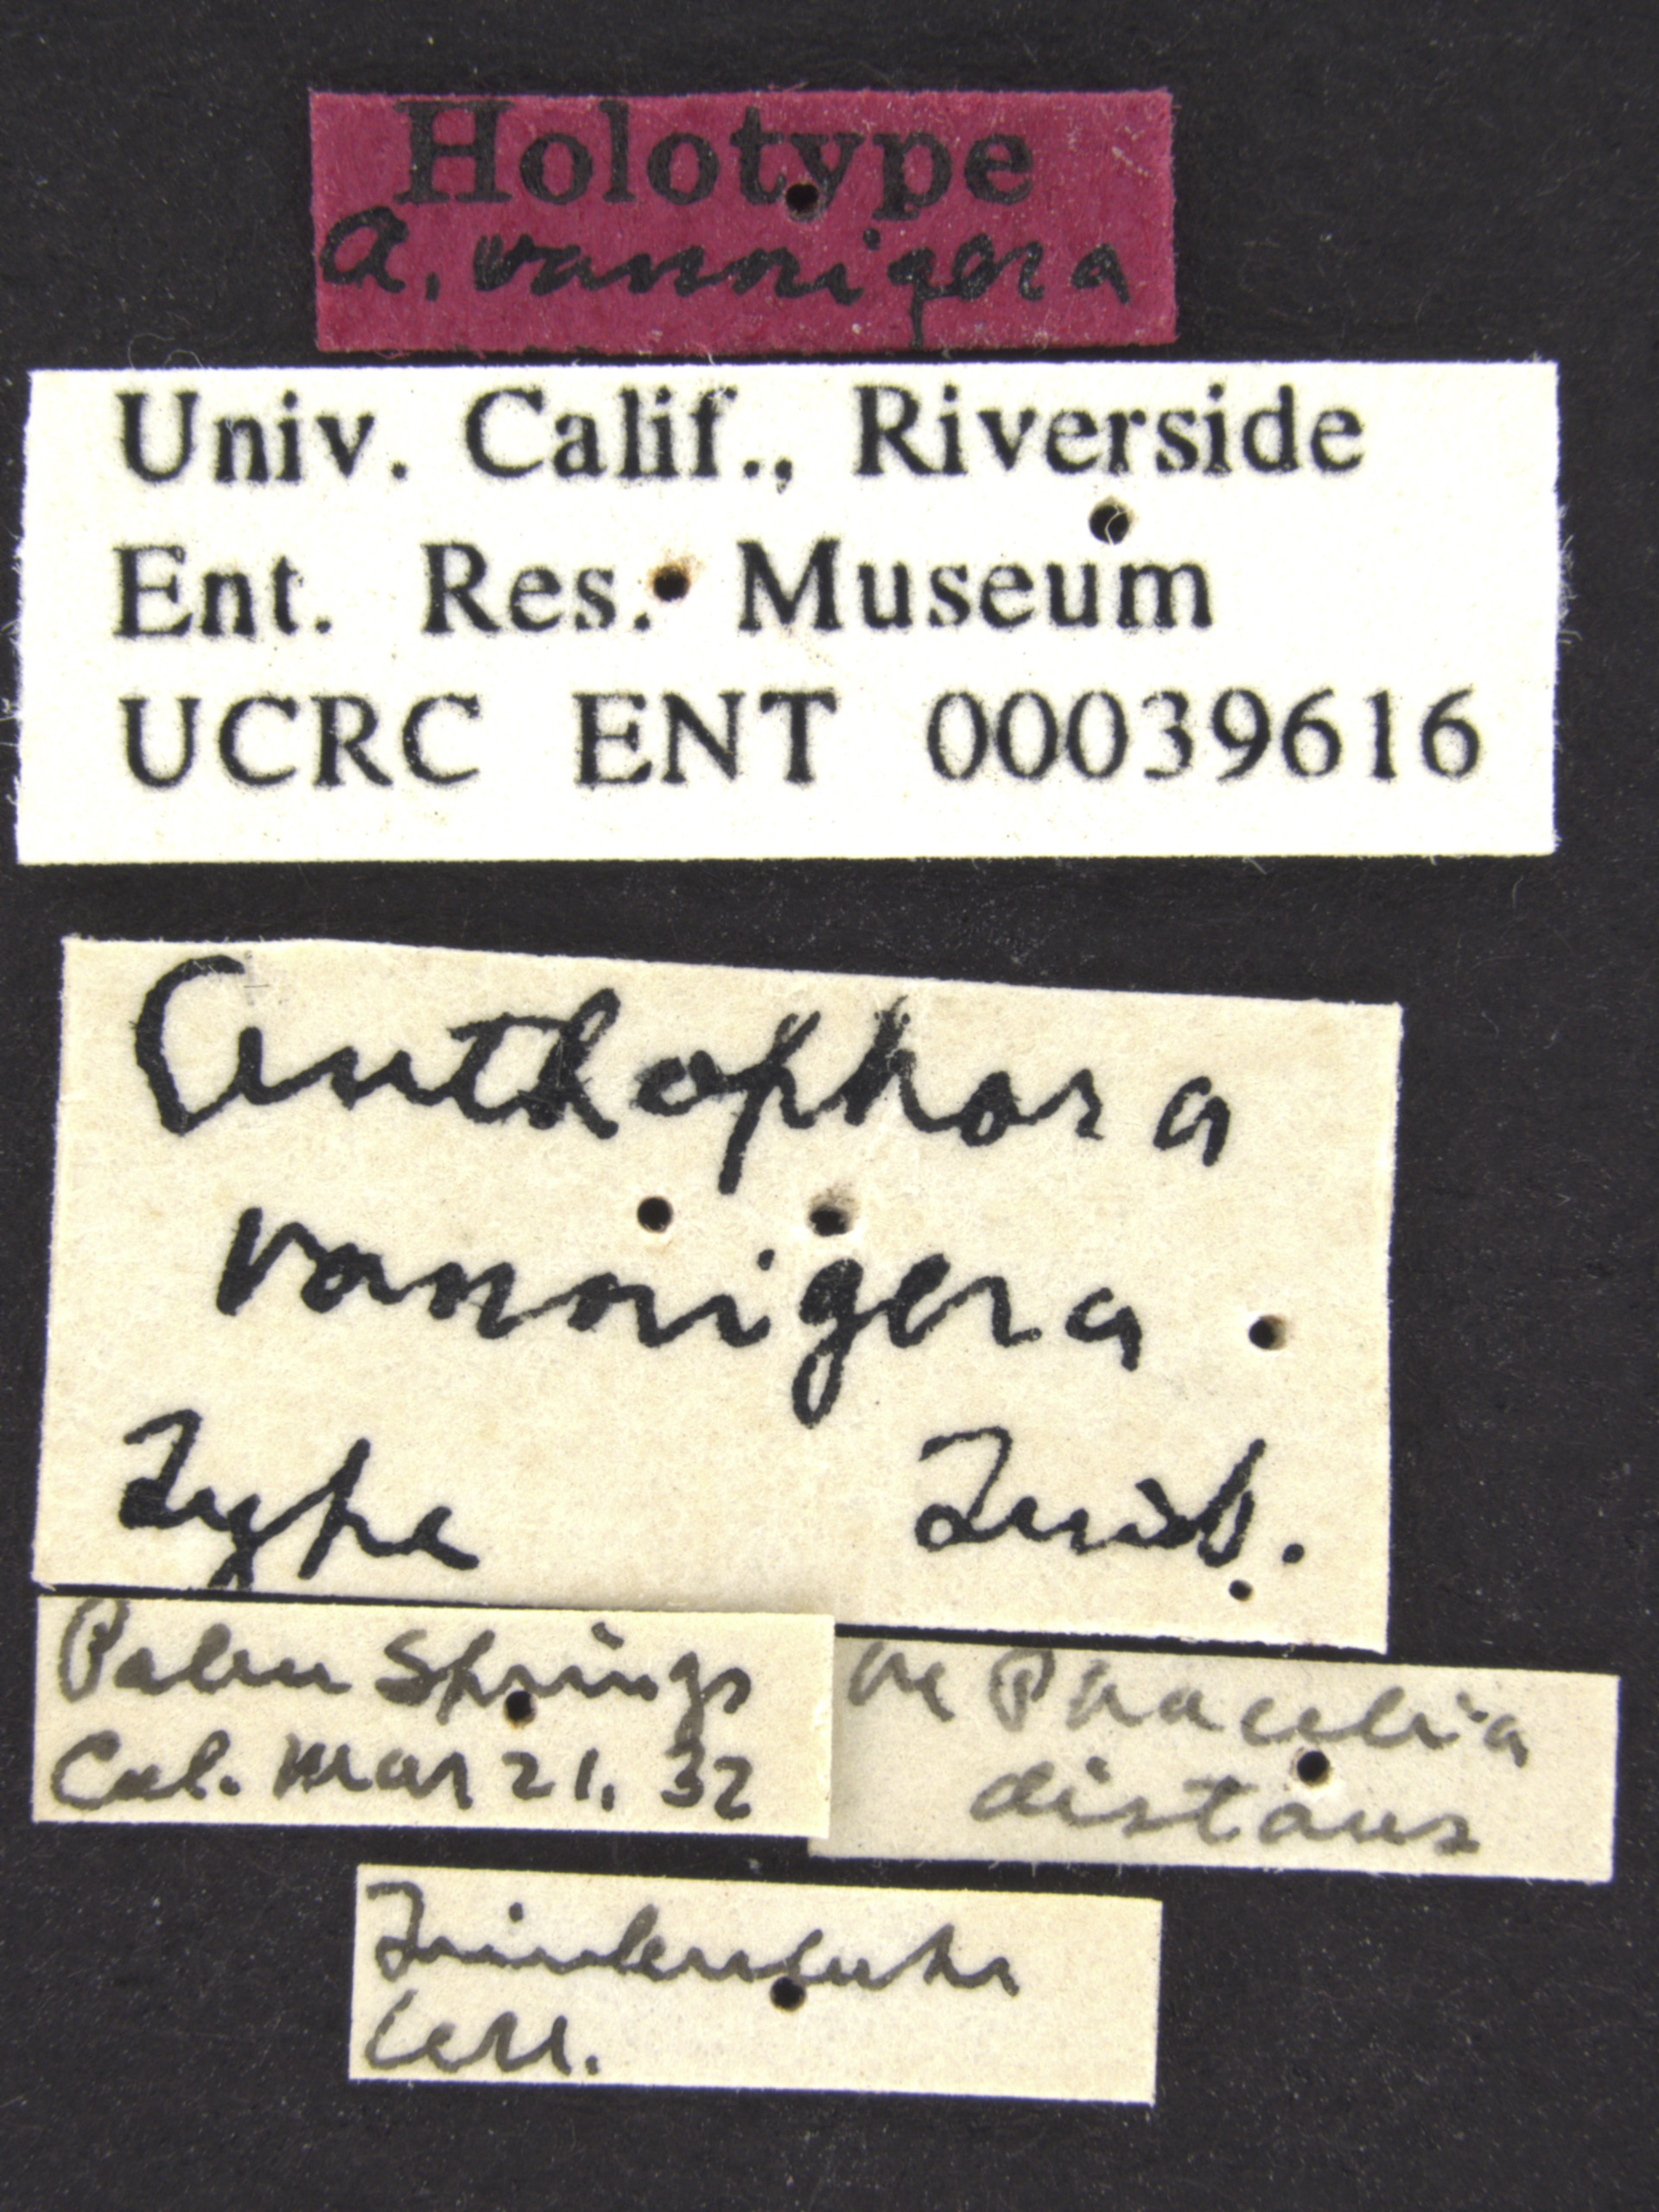 Holotype
A. vannigera
Univ. Calif., Riverside
Ent. Res. Museum
UCRC ENT 00039616
Anthophora
vannigera
Type Timb.
Palm Springs
Cal. Mar 21, 32
on Phacelia
distans
Timberlake
Coll.